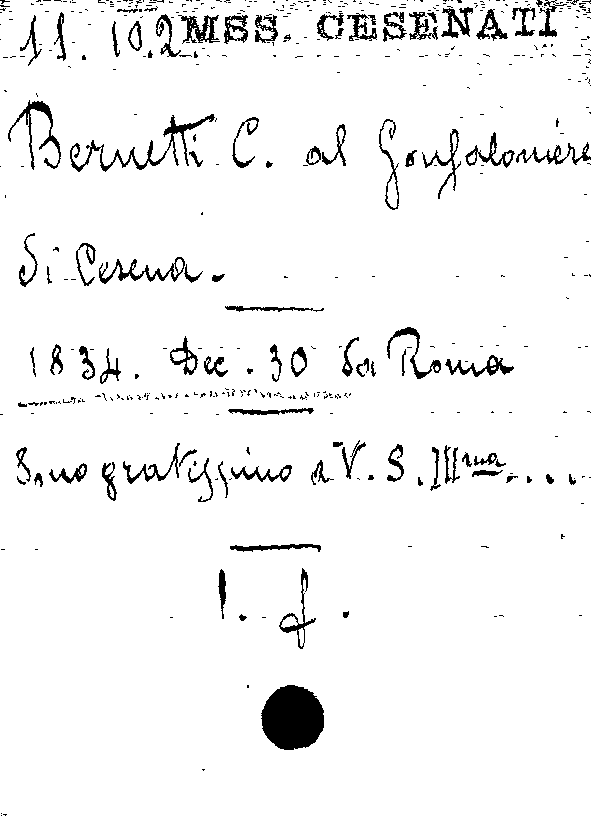 11. 10.2 MSS. CESENATI
Bernetti C. al Gonfaloniere
di Cesena.
1834. Dec. 30 da Roma
Sono gratissimo a V. S. Illma....
1. f.